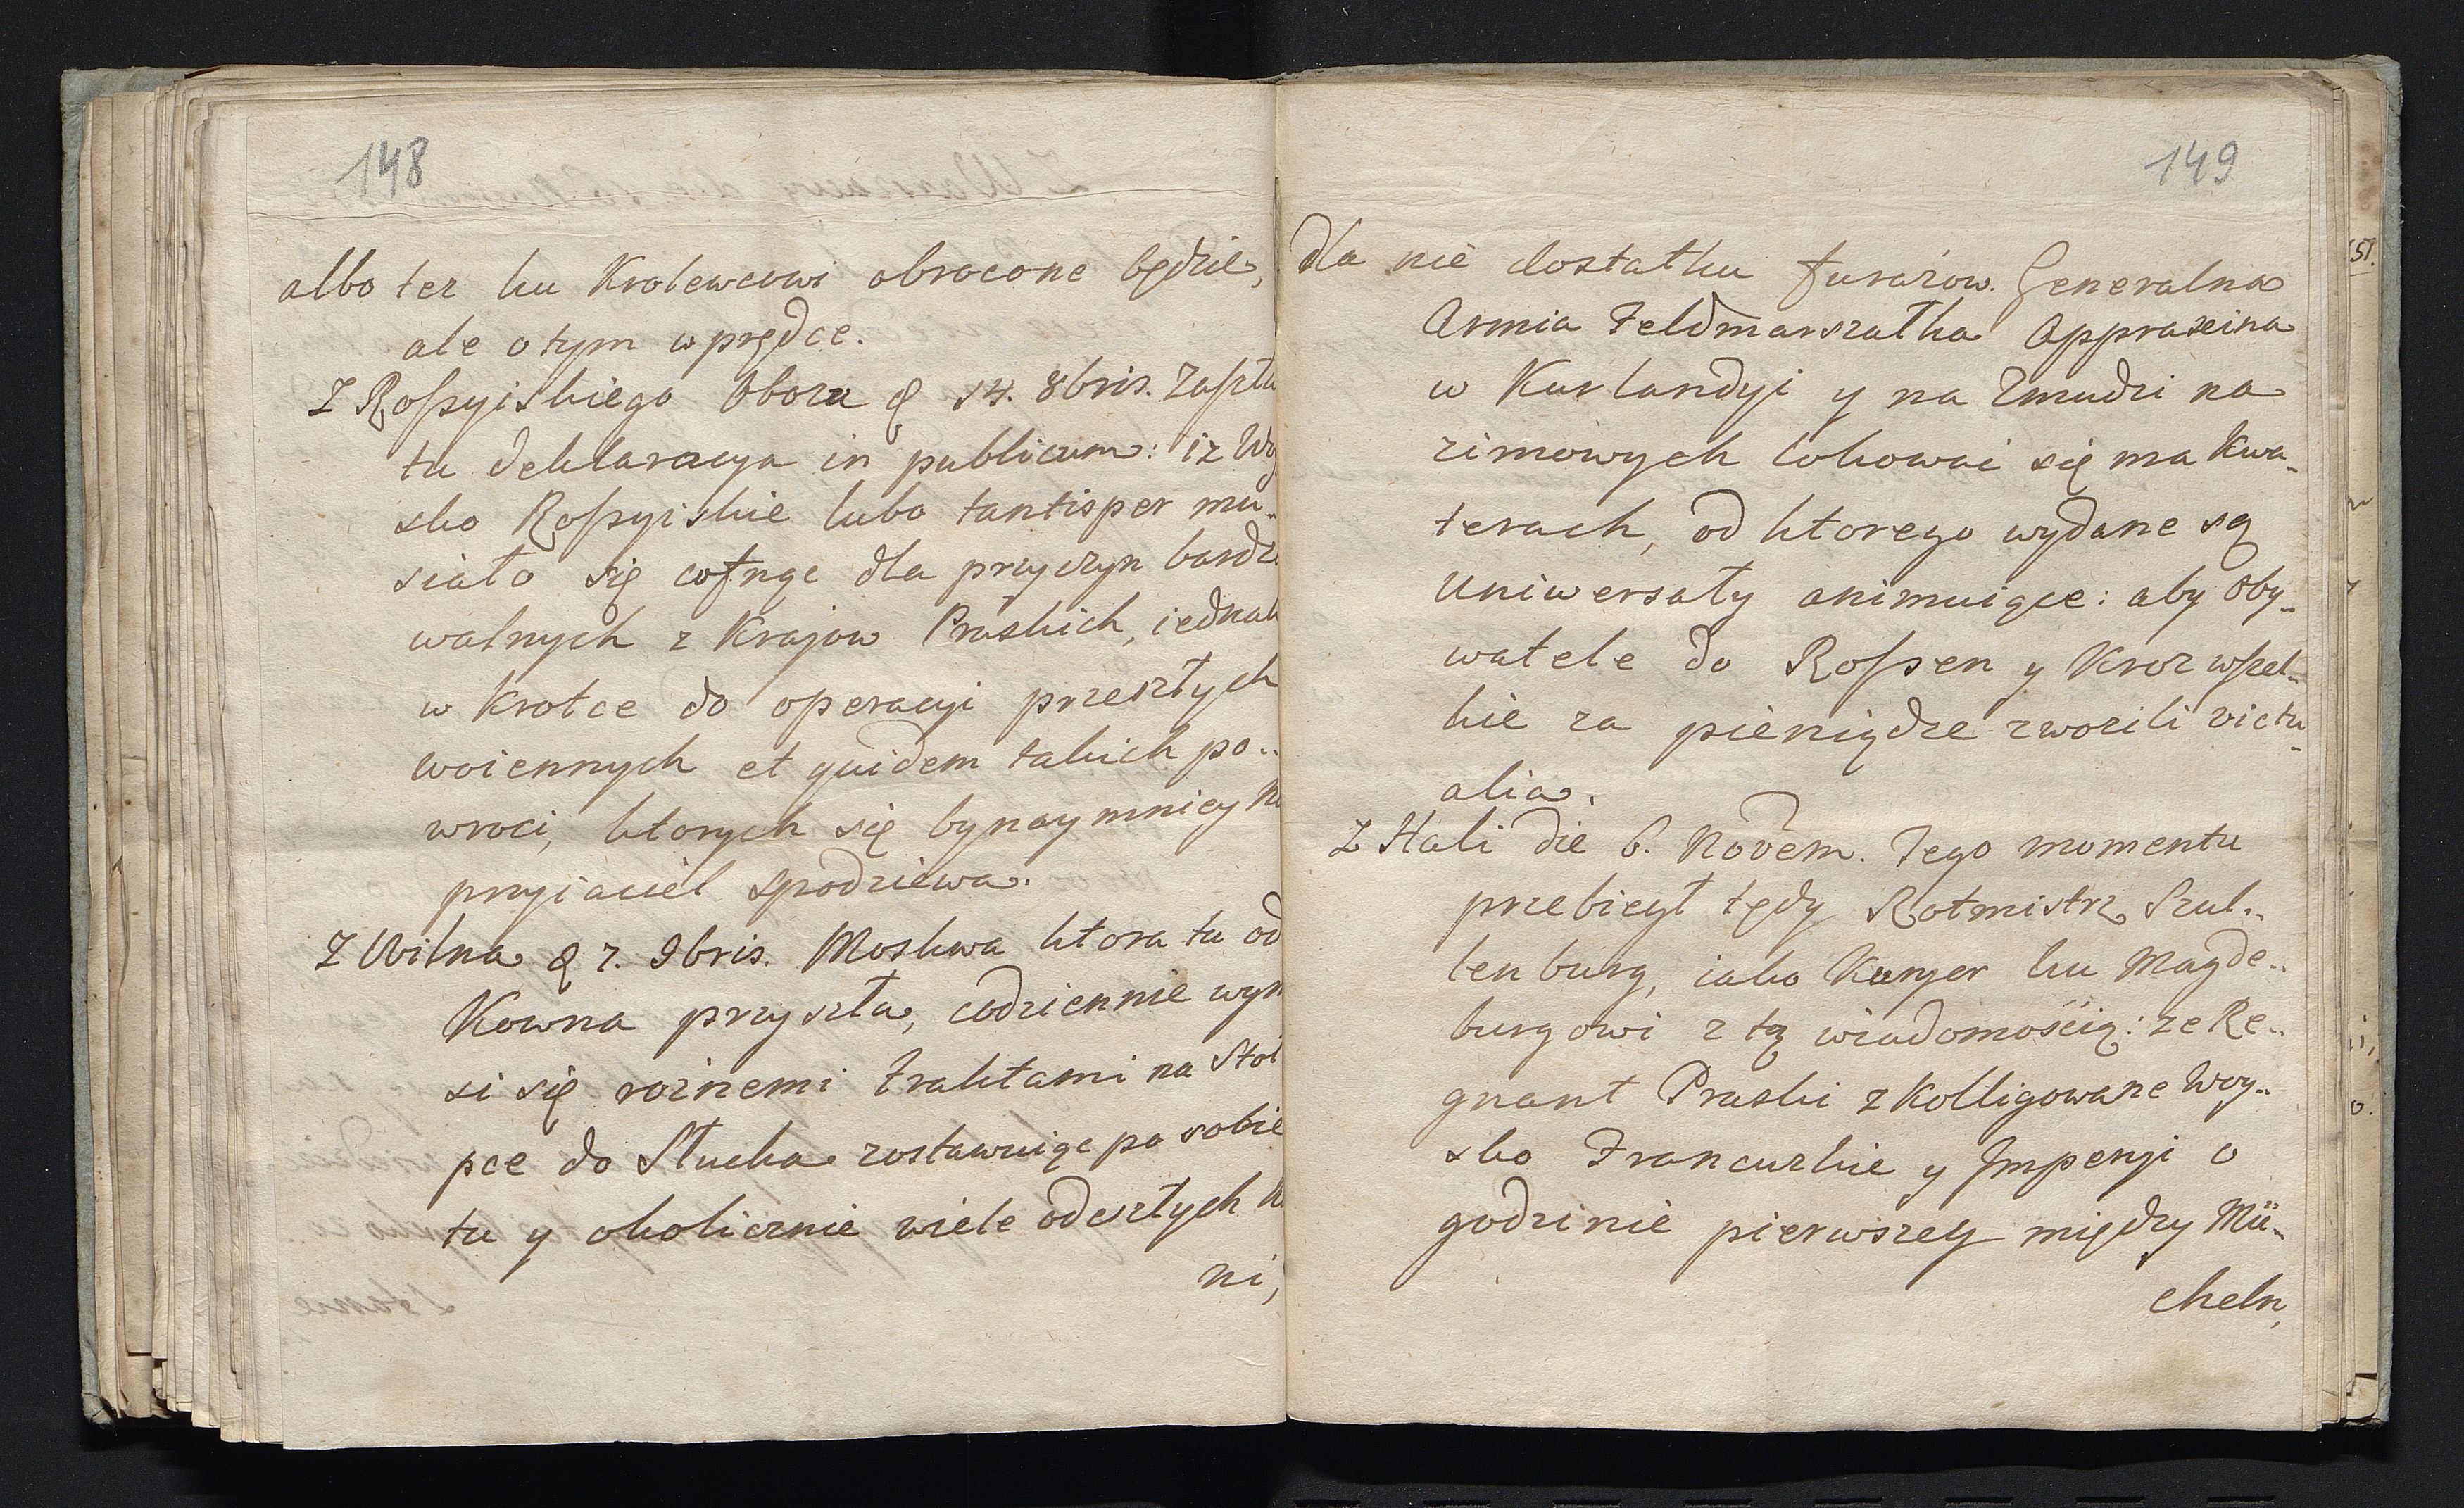 148
albo tez ku Krolewcowi obrocone będzie,
ale o tym w prędce.
Z Roſsyiskiego Obozu d 14. 8bris. Zaſzła
tu deklaracya in publicum: iż Woy
sko Roſsyiskie lubo tantisper mu-
siało się cofnąc dla przyczyn bardzo
walnych z Krajow Pruskich, iednak
w krotce do operacyi przeszłych
woiennych et quidem takich po-
wroci, ktorych się bynaymniey nie
przyiaciel spodziewa.
Z Wilna d 7. 9bris. Moskwa ktora tu od
Kowna przyszła, codziennie wyn
si się rożnemi traktami na Stoł
pce do Słucka zostawuiąc po sobie
tu y okolicznie wiele odeszłych ko
ni,
149
dla nie dostatku furażow. Generalna
Armia Feldmarszałka Appraxina
w Kurlandyi y na Zmudzi na
zimowych lokowac się ma Kwa-
terach, od ktorego wydane są
Uniwersały animuiące: aby Oby-
watele do Roſsen y Kroz wſzel-
kie za pieniądze zwozili victu-
alia.
Z Hali die 6. Novem. Tego momentu
przebiegł tędy Rotmistrz Szul-
lenburg, iako Kuryer ku Magde-
burgowi z tą wiadomością: ze Re-
gnant Pruski zKolligowane Woy-
sko Francuzkie y Imperyi o
godzinie pierwszey między Mü-
cheln,
151.